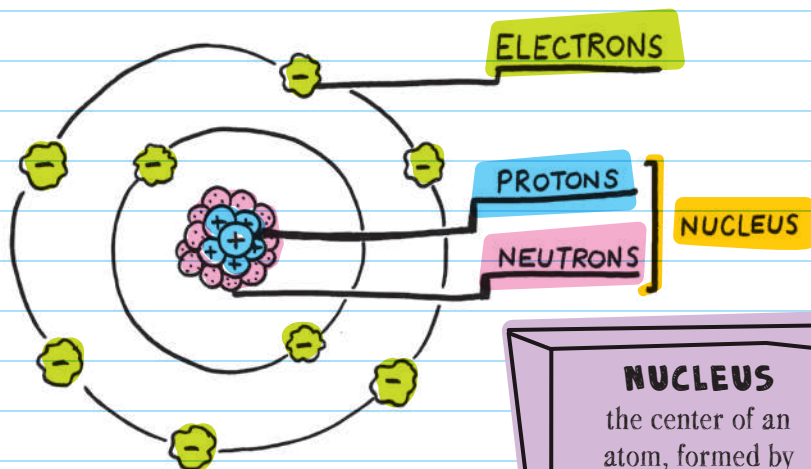 ELECTRONS
PROTONS
NEUTRONS
NUCLEUS
NUCLEUS
the center of an
atom, formed by